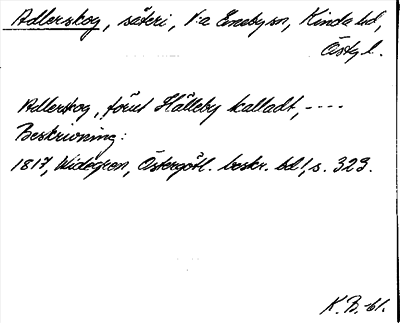 Adlerskog, säteri, V:a Eneby sn, Kinda hd,
Östg l.
Adlerskog, förut Hälleby kalladt, ----
Beskrivning:
1817, Widegren, Östergötl. beskr. bd 1, s. 323.
K. B.-bl.